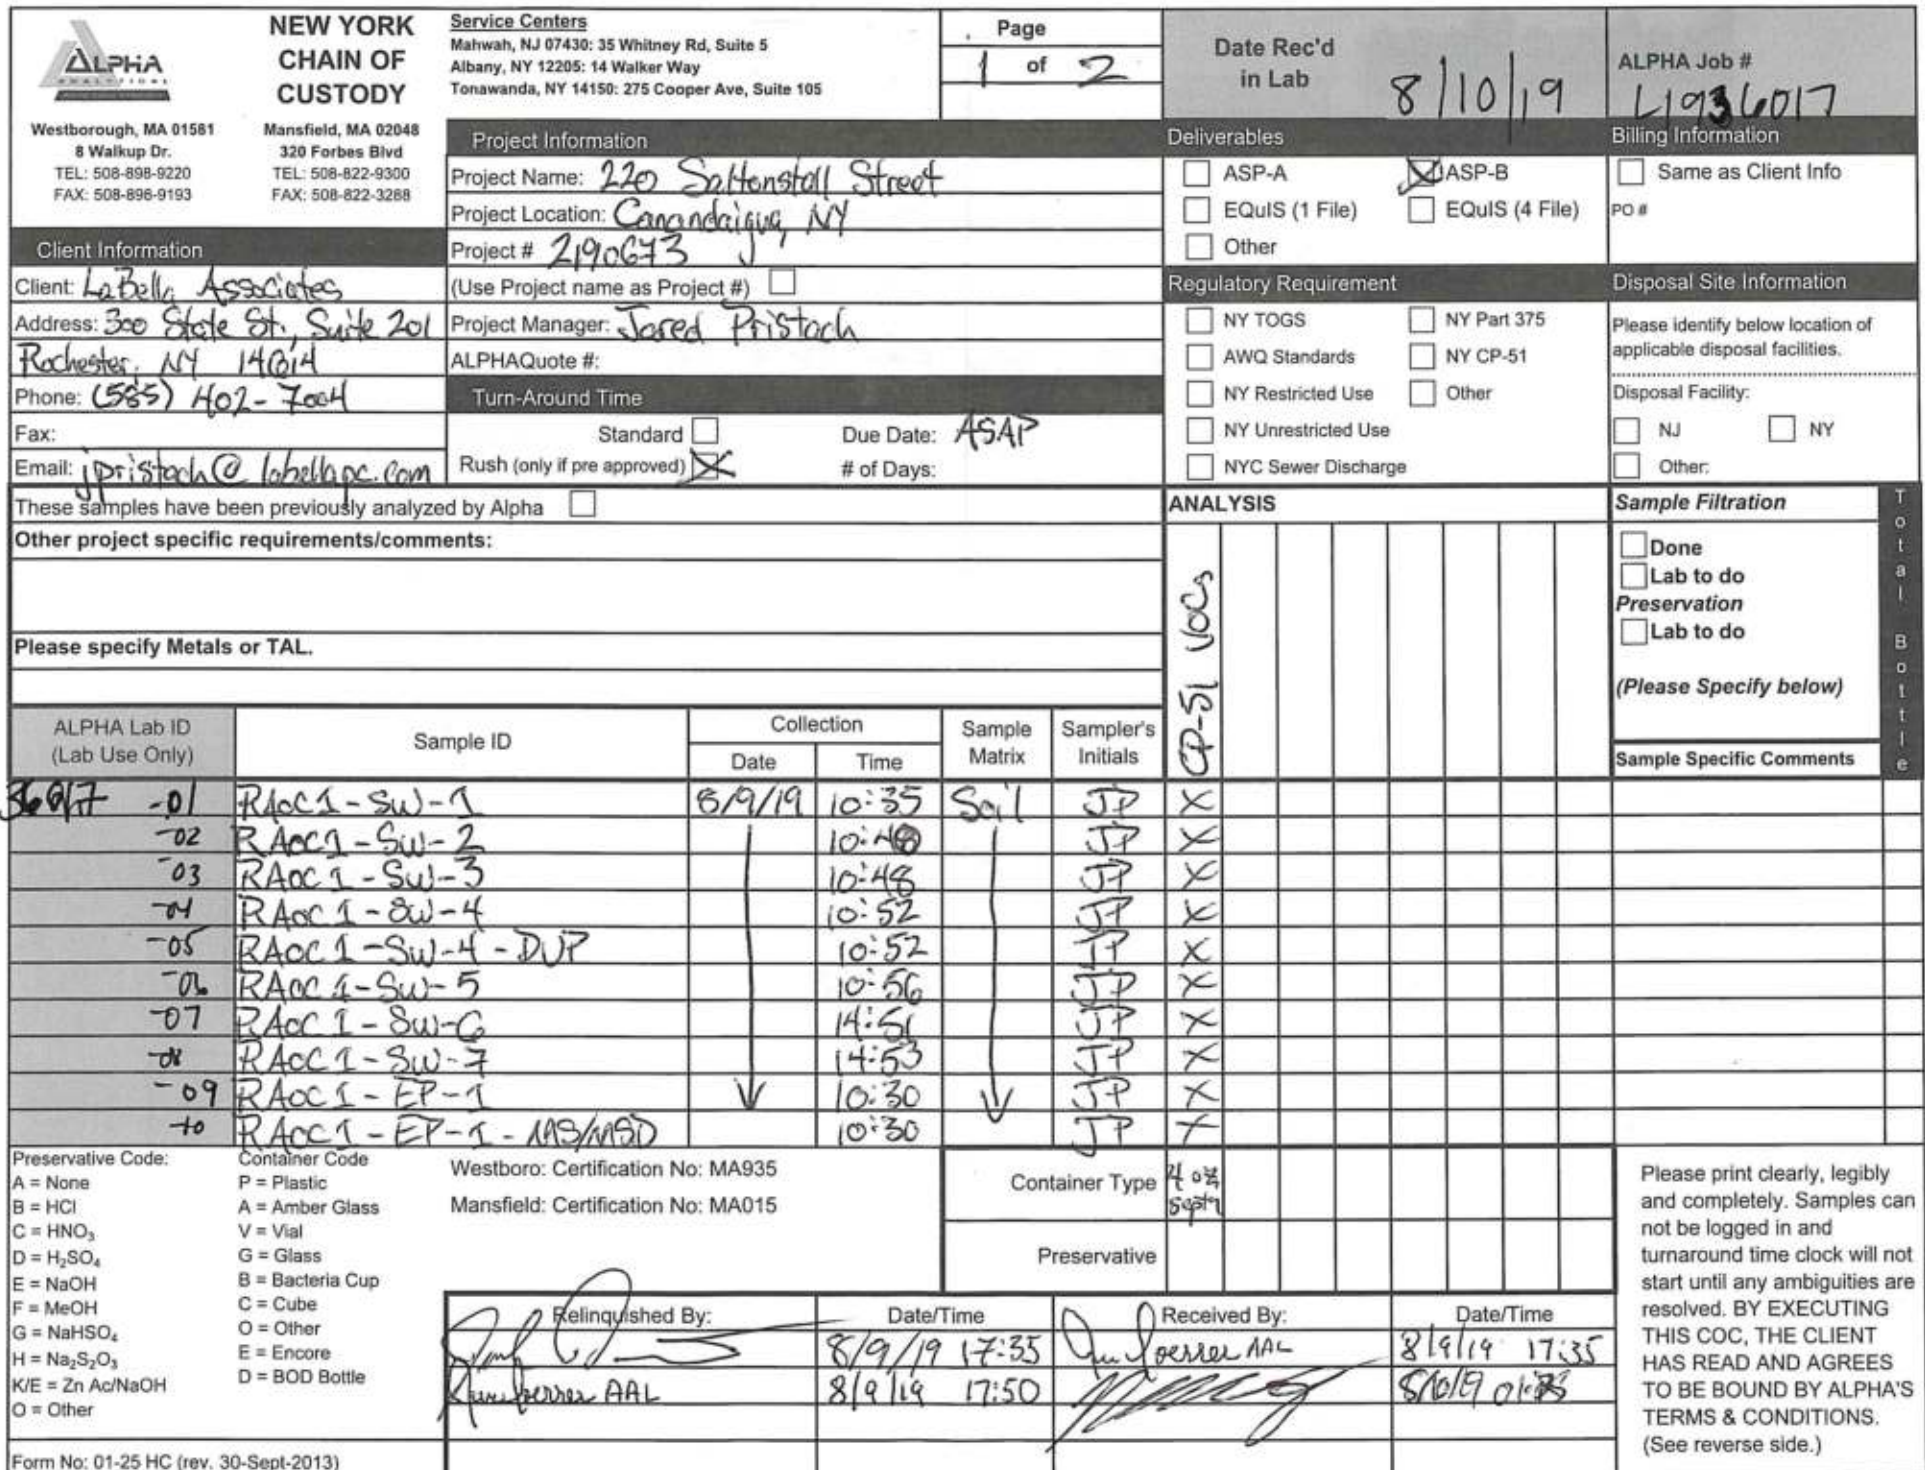 ALPHA
ANALYTICAL
NEW YORK
CHAIN OF
CUSTODY
Westborough, MA 01581
8 Walkup Dr.
TEL: 508-898-9220
FAX: 508-898-9193
Mansfield, MA 02048
320 Forbes Blvd
TEL: 508-822-9300
FAX: 508-822-3288
Service Centers
Mahwah, NJ 07430: 35 Whitney Rd, Suite 5
Albany, NY 12205: 14 Walker Way
Tonawanda, NY 14150: 275 Cooper Ave, Suite 105
Page
1 of 2
Date Rec'd
in Lab
8/10/19
ALPHA Job #
L1936017
Client Information
Client: LaBella Associates
Address: 300 State St., Suite 201
Rochester, NY 14614
Phone: (585) 402-7004
Fax:
Email: jpristach@labellapc.com
Project Information
Project Name: 220 Saltonstall Street
Project Location: Canandaigua, NY
Project # 2190673
(Use Project name as Project #)
Project Manager: Jared Pristach
ALPHAQuote #:
Turn-Around Time
Standard
Due Date: ASAP
Rush (only if pre approved) X
# of Days:
Deliverables
ASP-A
X ASP-B
EQuIS (1 File)
EQuIS (4 File)
Other
Regulatory Requirement
NY TOGS
NY Part 375
AWQ Standards
NY CP-51
NY Restricted Use
Other
NY Unrestricted Use
NYC Sewer Discharge
Billing Information
Same as Client Info
PO #
Disposal Site Information
Please identify below location of
applicable disposal facilities.
Disposal Facility:
NJ NY
Other:
These samples have been previously analyzed by Alpha
Other project specific requirements/comments:
Please specify Metals or TAL.
ANALYSIS
CP-51 VOCs
Sample Filtration
Done
Lab to do
Preservation
Lab to do
(Please Specify below)
Total Bottle
ALPHA Lab ID
(Lab Use Only)
Sample ID
Collection
Date
Time
Sample
Matrix
Sampler's
Initials
Sample Specific Comments
36017 -01 RAOC1-SW-1 8/9/19 10:35 Soil JP X
-02 RAOC1-SW-2 JP X
-03 RAOC1-SW-3 10:48 JP X
-04 RAOC1-SW-4 10:52 JP X
-05 RAOC1-SW-4-DUP 10:52 JP X
-06 RAOC1-SW-5 10:56 JP X
-07 RAOC1-SW-6 14:51 JP X
-08 RAOC1-SW-7 14:53 JP X
-09 RAOC1-EP-1 10:30 JP X
-10 RAOC1-EP-1-MS/MSD 10:30 JP X
Preservative Code:
A = None
B = HCl
C = HNO₃
D = H₂SO₄
E = NaOH
F = MeOH
G = NaHSO₄
H = Na₂S₂O₃
K/E = Zn Ac/NaOH
O = Other
Container Code
P = Plastic
A = Amber Glass
V = Vial
G = Glass
B = Bacteria Cup
C = Cube
O = Other
E = Encore
D = BOD Bottle
Westboro: Certification No: MA935
Mansfield: Certification No: MA015
Container Type
4 oz
Preservative
Relinquished By:
Date/Time
Received By:
Date/Time
8/9/19 17:35
AAL
8/9/19 17:35
AAL
8/9/19 17:50
Please print clearly, legibly
and completely. Samples can
not be logged in and
turnaround time clock will not
start until any ambiguities are
resolved. BY EXECUTING
THIS COC, THE CLIENT
HAS READ AND AGREES
TO BE BOUND BY ALPHA'S
TERMS & CONDITIONS.
(See reverse side.)
Form No: 01-25 HC (rev. 30-Sept-2013)